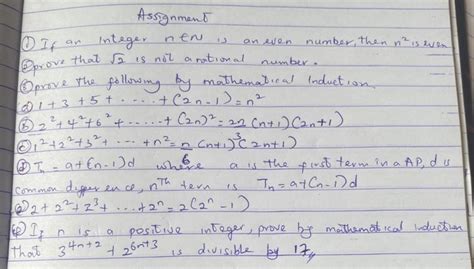 Assignment
① If an Integer n∈N is an even number, then n² is even
② prove that √2 is not a rational number.
③ prove the following by mathematical Induction.
ⓐ 1+3+5+.....+(2n-1)=n²
ⓑ 2²+4²+6²+......+(2n)²=2n/3 (n+1)(2n+1)
ⓒ 1²+2²+3²+... +n²=n/6 (n+1)(2n+1)
ⓓ Tn=a+(n-1)d where a is the first term in a AP, d is
common difference, nᵗʰ term is Tn=a+(n-1)d
ⓔ 2+2²+2³+...+2ⁿ=2(2ⁿ-1)
④ If n is a positive integer, prove by mathematical induction
that 3⁴ⁿ⁺²+2⁶ⁿ⁺³ is divisible by 17,,